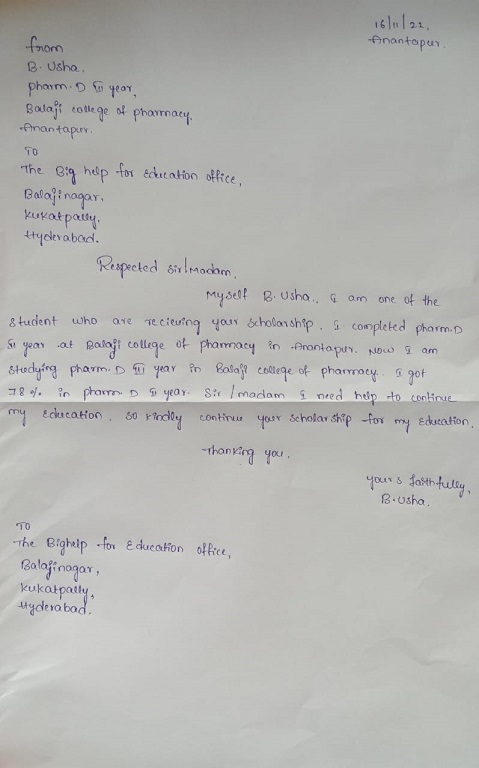 16/11/22,
Anantapur.
from
B. Usha.
pharm.D III year,
Balaji college of pharmacy.
Anantapur.
TO
The Big help for Education office,
Balajinagar,
Kukatpally,
Hyderabad.
Respected Sir/Madam,
Myself B. Usha., I am one of the
student who are recieving your scholarship. I completed pharm.D
II year at Balaji college of pharmacy in Anantapur. Now I am
studying pharm. D III year in Balaji college of pharmacy. I got
78% in pharm. D II year. Sir/madam I need help to continue
my Education. So kindly continue your scholarship for my Education.
Thanking you.
yours faithfully,
B. Usha.
TO
The Bighelp for Education office,
Balajinagar,
Kukatpally,
Hyderabad.